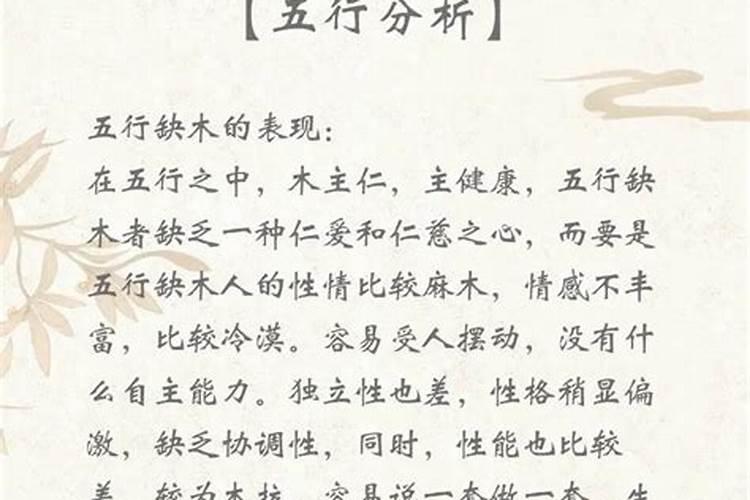 【五行分析】
五行缺木的表现：
在五行之中，木主仁，主健康，五行缺
木者缺乏一种仁爱和仁慈之心，而要是
五行缺木人的性情比较麻木，情感不丰
富，比较冷漠。容易受人摆动，没有什
么自主能力。独立性也差，性格稍显偏
激，缺乏协调性，同时，性能也比较
差，较为木